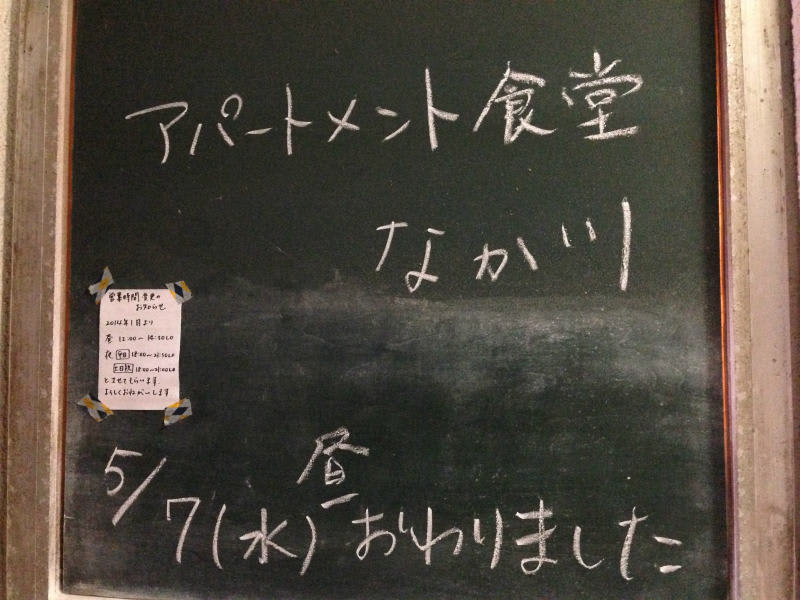 アパートメント食堂
なか川
営業時間変更の
お知らせ
2014年1月より
昼 12:00〜14:30LO
夜 平日 18:00〜21:30LO
土日祝 18:00〜21:00LO
とさせてもらいます
よろしくおねがいします
5/7(水)昼おわりました